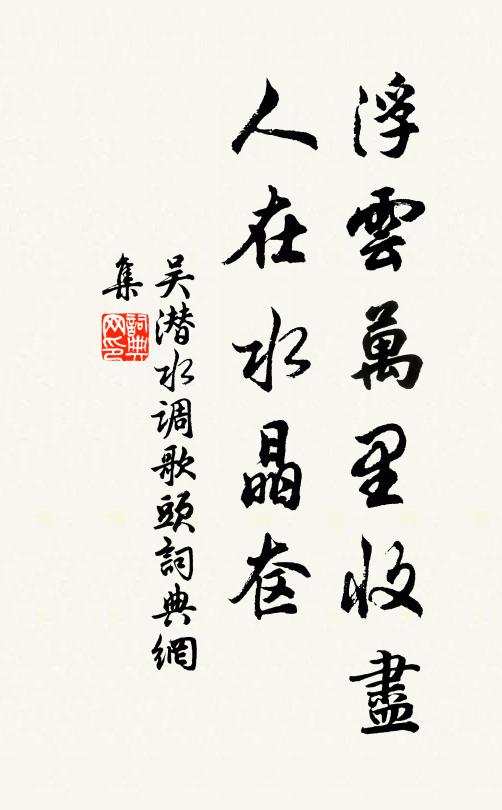 浮雲萬里收盡
人在水晶奁
吴潜水調歌頭詞典網
集
詞典
网印